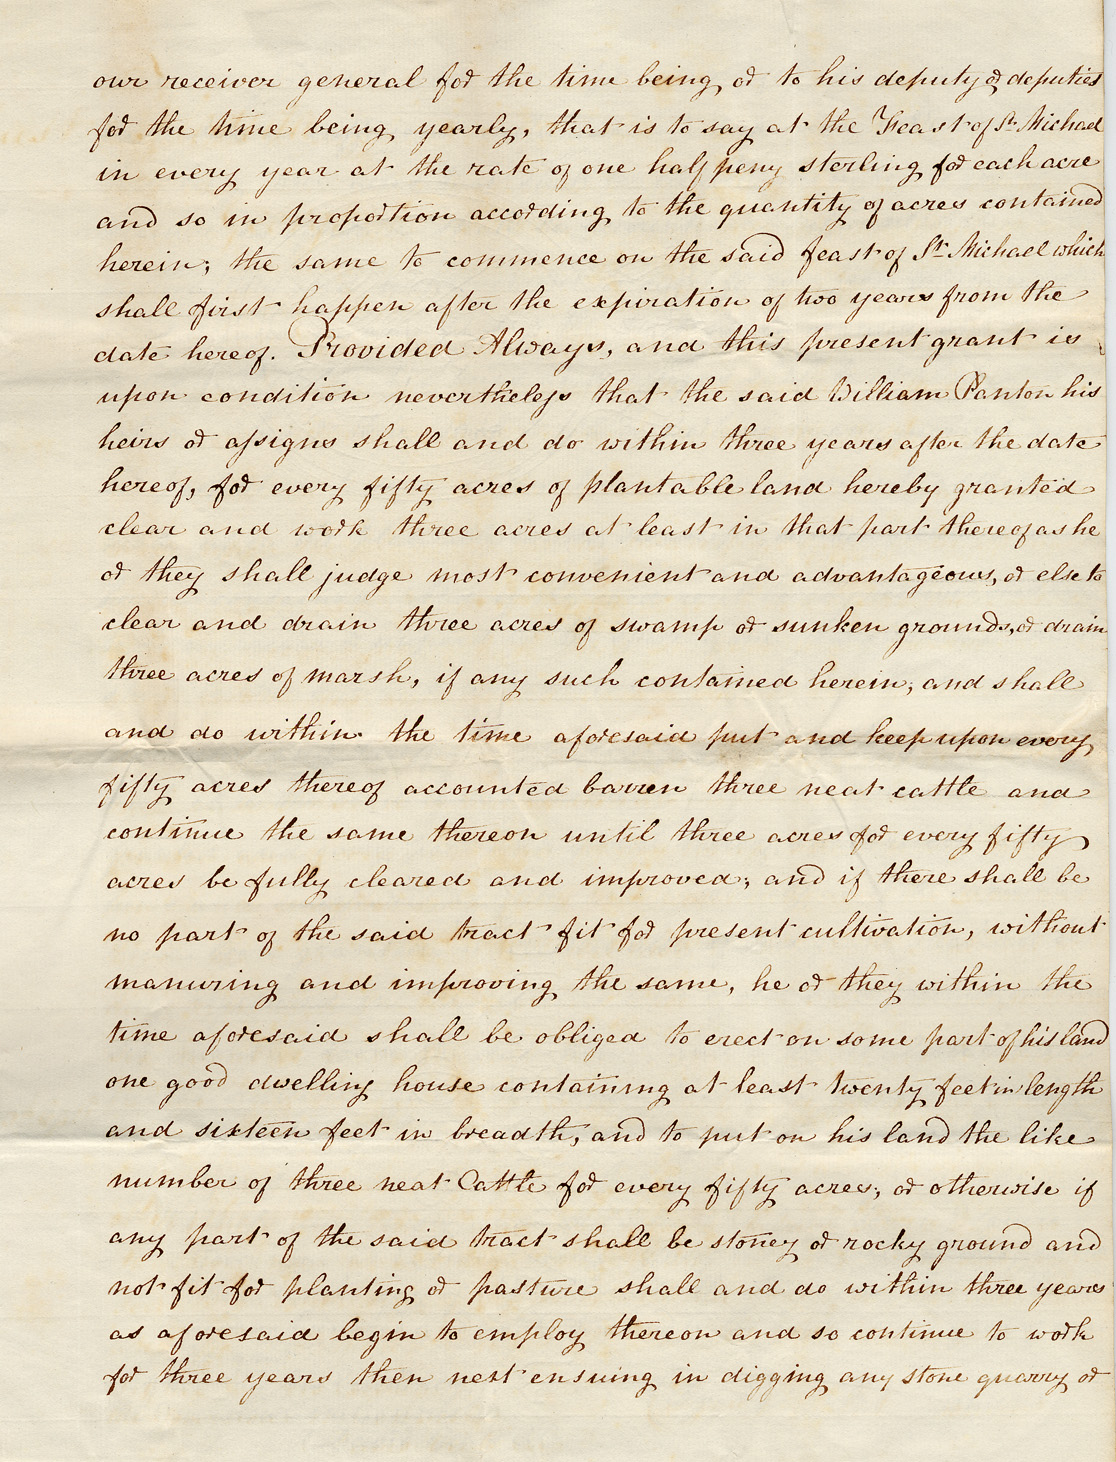 our receiver general for the time being, or to his deputy or deputies
for the time being yearly, that is to say at the Feast of St. Michael
in every year at the rate of one half peny sterling for each acre
and so in proportion according to the quantity of acres contained
herein; the same to commence on the said feast of St. Michael which
shall first happen after the expiration of two years from the
date hereof. Provided Always, and this present grant is
upon condition nevertheless that the said William Panton his
heirs or assigns shall and do within three years after the date
hereof, for every fifty acres of plantable land hereby granted
clear and work three acres at least in that part thereof as he
or they shall judge most convenient and advantageous, or else to
clear and drain three acres of swamp or sunken grounds, or drain
three acres of marsh, if any such contained herein; and shall
and do within the time aforesaid put and keep upon every
fifty acres thereof accounted barren three neat cattle and
continue the same thereon until three acres for every fifty
acres be fully cleared and improved; and if there shall be
no part of the said tract fit for present cultivation, without
manuring and improving the same, he or they within the
time aforesaid shall be obliged to erect on some part of his land
one good dwelling house containing at least twenty feet in length
and sixteen feet in breadth, and to put on his land the like
number of three neat Cattle for every fifty acres; or otherwise if
any part of the said tract shall be stoney or rocky ground and
not fit for planting or pasture shall and do within three years
as aforesaid begin to employ thereon and so continue to work
for three years then next ensuing in digging any stone quarry or